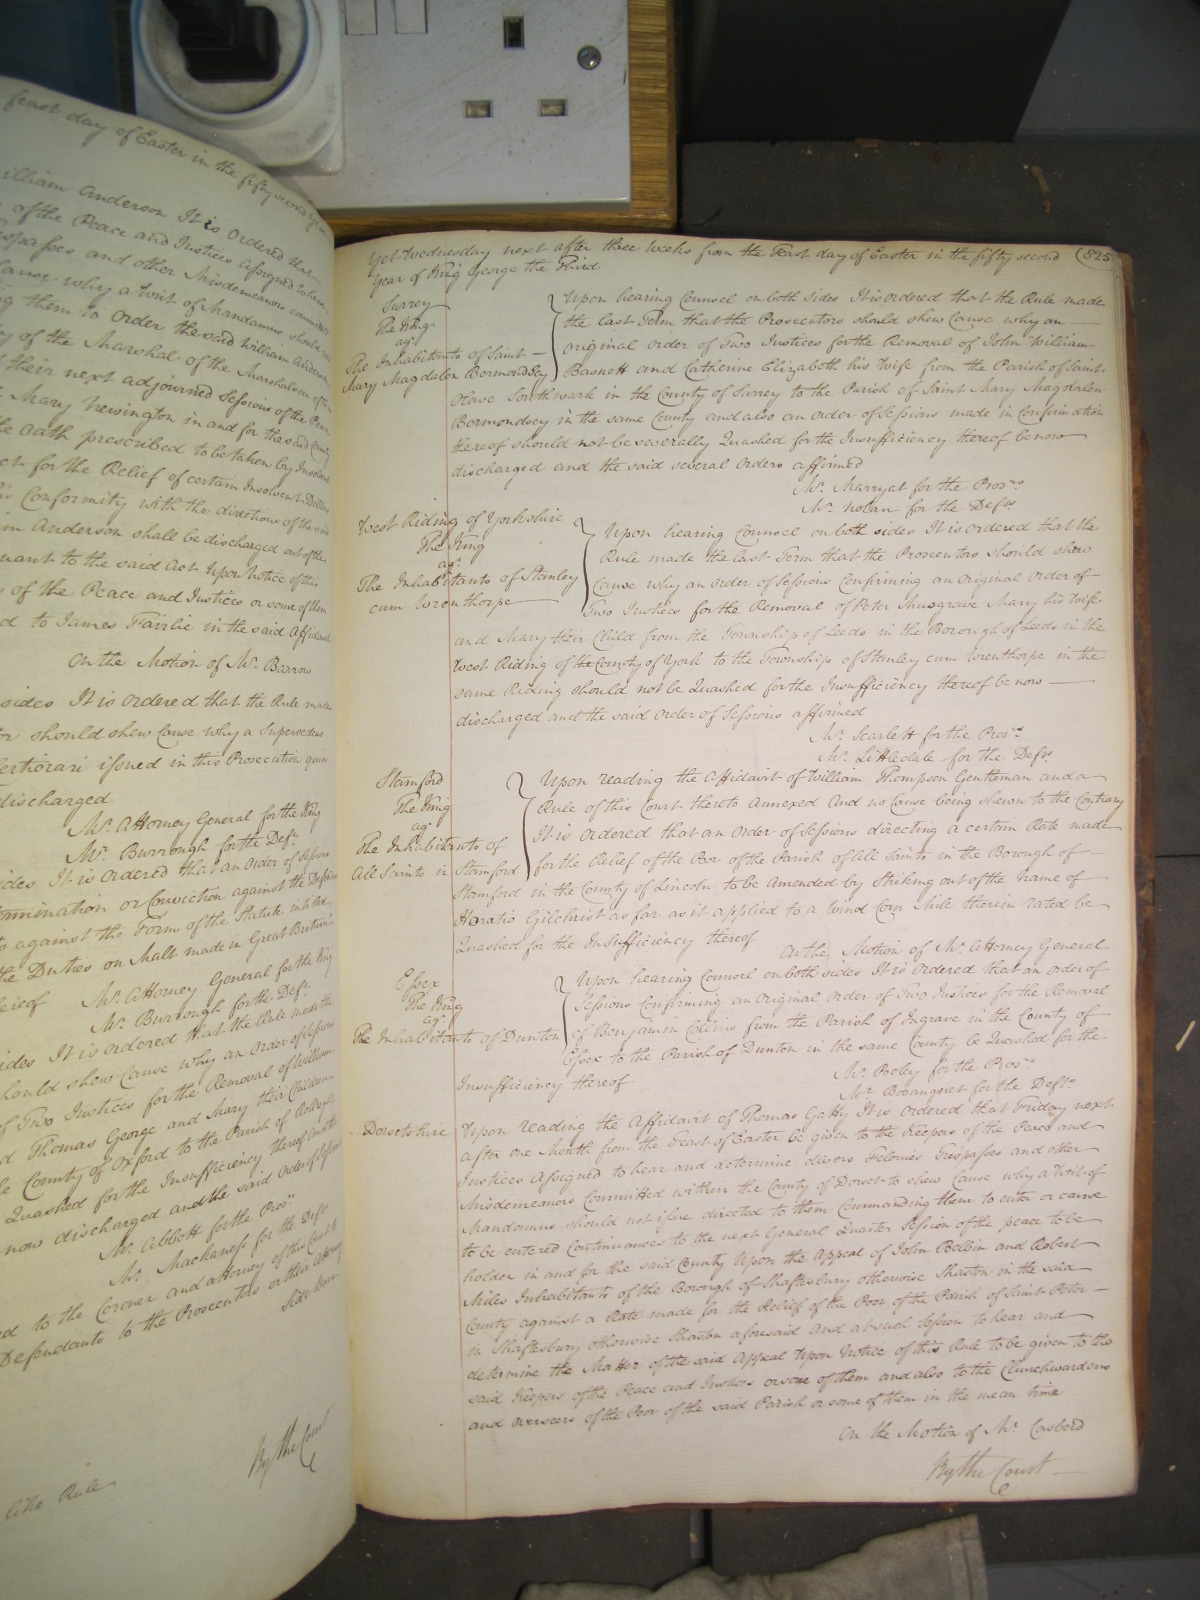 feast day of Easter in the fifty second year
William Anderson It is Ordered that
of the Peace and Justices assigned to hear
Trespasses and other Misdemeanors committed
Cause why a Writ of Mandamus should not
them to order the said William Anderson
of the Marshal of the Marshalsea of the
their next adjourned Sessions of the Peace
Mary Newington in and for the said County
the Oath prescribed to be taken by Insolvent
Act for the Relief of certain Insolvent Debtors
his Conformity with the directions of the said
Anderson shall be discharged out of the
pursuant to the said Act Upon Notice of this
of the Peace and Justices or some of them
and to James Fairlie in the said Affidavit
On the Motion of Mr. Barrow
sides It is Ordered that the Rule made
should shew Cause why a Supersedeas
Certiorari issued in this Prosecution quia
discharged
Mr. Attorney General for the King
Mr. Burrough for the Deft.
sides It is Ordered that an Order of Sessions
or Conviction against the Defendant
against the Form of the Statute intitled
the Duties on Malt made in Great Britain
thereof Mr. Attorney General for the King
Mr. Burrough for the Deft.
sides It is Ordered that the Rule made the
should shew Cause why an Order of Sessions
of Two Justices for the Removal of William
Thomas George and Mary their Children
County of Oxford to the Parish of
Quashed for the Insufficiency thereof
now discharged and the said Order of Sessions
Mr. Abbott for the Pros.
Mr. Mackaness for the Deft.
to the Coroner and Attorney of this Court
Defendants to the Prosecutors or their Attorney
Side Bar
By the Court
the Rule
Yet Wednesday next after three Weeks from the Feast day of Easter in the fifty second (825
Year of King George the Third
Surrey
The King
agt
The Inhabitants of Saint
Mary Magdalen Bermondsey
Upon hearing Counsel on both sides It is ordered that the Rule made
the last Term that the Prosecutors should shew Cause why an
original Order of Two Justices for the Removal of John William
Basnett and Catherine Elizabeth his Wife from the Parish of Saint
Olave Southwark in the County of Surrey to the Parish of Saint Mary Magdalen
Bermondsey in the same County and also an Order of Sessions made in Confirmation
thereof should not be severally Quashed for the Insufficiency thereof be now
discharged and the said several Orders affirmed
Mr. Marryat for the Prosrs
Mr. Nolan for the Defts
West Riding of Yorkshire
The King
agt
The Inhabitants of Stanley
cum Wrenthorpe
Upon hearing Counsel on both sides It is ordered that the
Rule made the last Term that the Prosecutors should shew
Cause why an Order of Sessions Confirming an Original Order of
Two Justices for the Removal of Peter Musgrave Mary his Wife
and Mary their Child from the Township of Leeds in the Borough of Leeds in the
West Riding of the County of York to the Township of Stanley cum Wrenthorpe in the
same Riding should not be Quashed for the Insufficiency thereof be now
discharged and the said Order of Sessions affirmed
Mr. Scarlett for the Prosrs
Mr. Littledale for the Defts
Stamford
The King
agt
The Inhabitants of
All Saints in Stamford
Upon reading the Affidavit of William Thompson Gentleman and a
Rule of this Court thereto Annexed And no Cause being shewn to the Contrary
It is Ordered that an Order of Sessions directing a certain Rate made
for the Relief of the Poor of the Parish of All Saints in the Borough of
Stamford in the County of Lincoln to be Amended by Striking out of the name of
Horatio Gilchrist as far as it applied to a Wind Corn Mill therein rated be
Quashed for the Insufficiency thereof
On the Motion of Mr. Attorney General
Essex
The King
agt
The Inhabitants of Dunton
Upon hearing Counsel on both sides It is Ordered that an Order of
Sessions Confirming an Original Order of Two Justices for the Removal
of Benjamin Collins from the Parish of Ingrave in the County of
Essex to the Parish of Dunton in the same County be Quashed for the
Insufficiency thereof
Mr. Pooley for the Prosrs
Mr. Bosanquet for the Defts
Dorsetshire
Upon reading the Affidavit of Thomas Gatty It is ordered that Friday next
after one Month from the Feast of Easter be given to the Keepers of the Peace and
Justices Assigned to hear and determine divers Felonies Trespasses and other
Misdemeanors Committed within the County of Dorset to shew Cause why a Writ of
Mandamus should not issue directed to them Commanding them to enter or cause
to be entered Continuances to the next General Quarter Session of the peace to be
holden in and for the said County Upon the Appeal of John Belbin and Robert
Miles Inhabitants of the Borough of Shaftesbury otherwise Shaston in the said
County against a Rate made for the Relief of the Poor of the Parish of Saint Peter
in Shaftesbury otherwise Shaston aforesaid And at such Session to hear and
determine the Matter of the said Appeal Upon Notice of this Rule to be given to the
said Keepers of the Peace and Justices or some of them and also to the Churchwardens
and Overseers of the Poor of the said Parish or some of them in the mean time
On the Motion of Mr. Casberd
By the Court